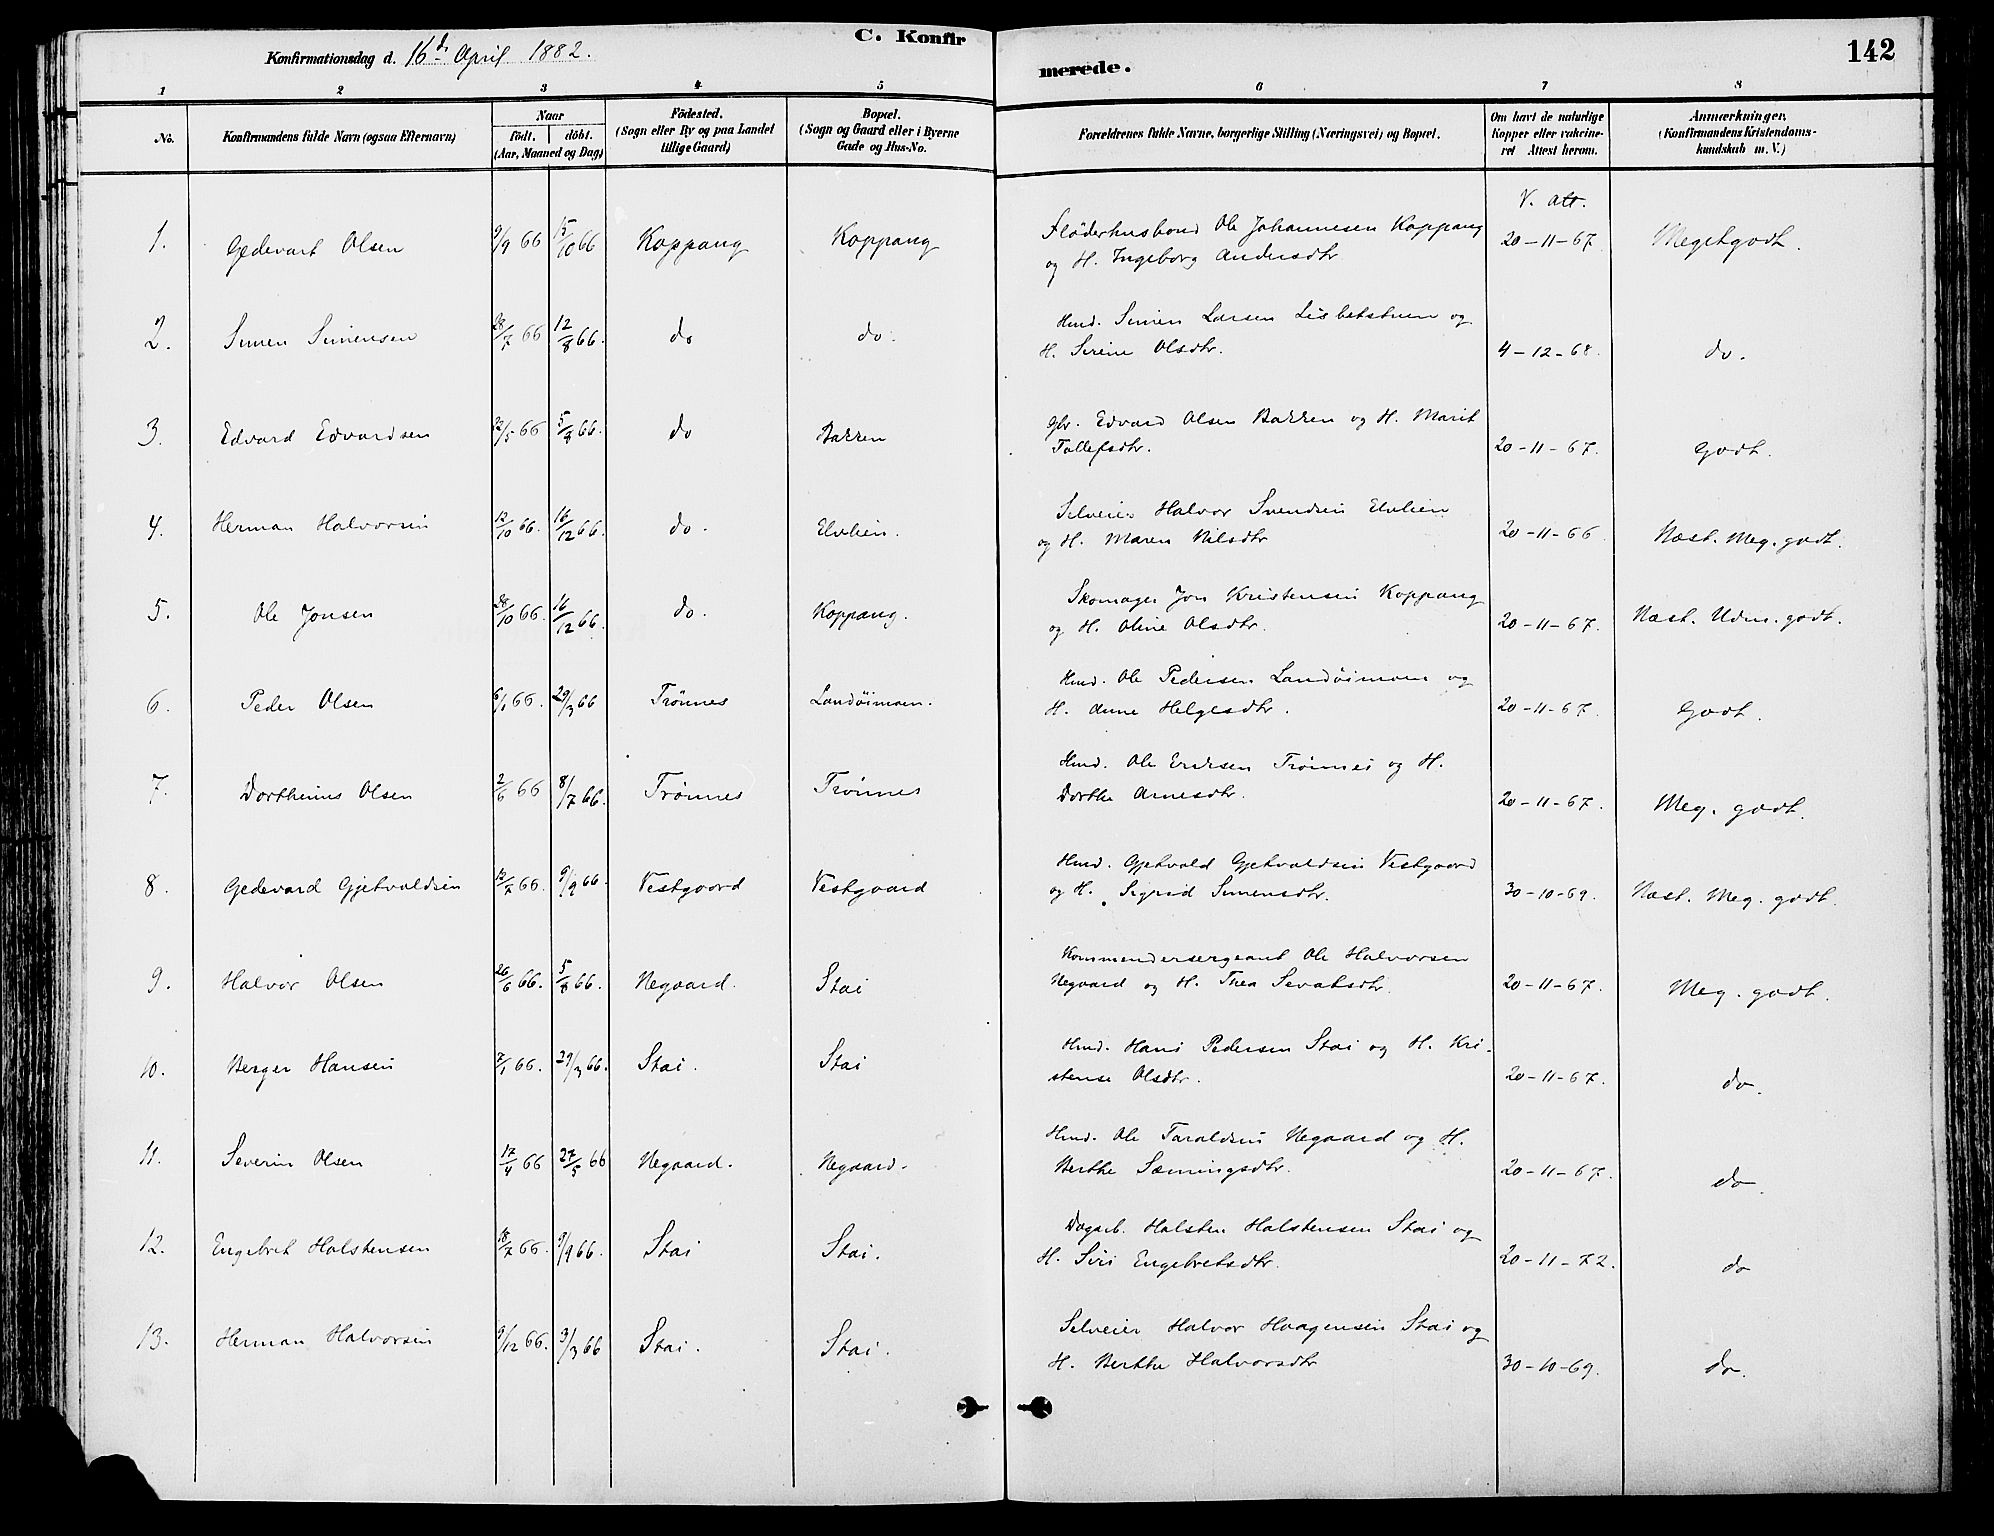 C. Konfir
Konfirmationsdag d. 16d. April 1882.
merede.
142
1 2 3 4 5 6 7 8
No.
Konfirmandens fulde Navn (ogsaa Efternavn)
Naar
födt. döbt.
(Aar, Maaned og Dag)
Födested.
(Sogn eller By og paa Landet
tillige Gaard)
Bopæl.
(Sogn og Gaard eller i Byerne
Gade og Hus-No.
Forældrenes fulde Navne, borgerlige Stilling (Næringsvei) og Bopæl.
Om havt de naturlige
Kopper eller vakcine-
ret Attest herom.
Anmærkninger,
(Konfirmandens Kristendoms-
kundskab m. V.)
V. att.
1. Gedevart Olsen 9/9 66 15/10 66 Koppang Koppang Fløderhusbond Ole Johannesen Koppang
og H. Ingeborg Andersdtr 20-11-67. Megetgodt.
2. Simen Simensen 28/7 66 12/8 66. do do. Hmd. Simen Larsen Lisbetstuen og
H. Serine Olsdtr. 4-12-68. do.
3. Edvard Edvardsen 22/5 66 5/8 66. do Bakken Gbr. Edvard Olsen Bakken og H. Marit
Tollefsdtr. 20-11-67. Godt.
4. Herman Halvorsen 12/10 66. 16/12 66. do. Elvlien. Selveier Halvor Svendsen Elvlien
og H. Maren Nilsdtr 20-11-66. Næst. Meg. godt.
5. Ole Jonsen 28/10 66. 16/12 66. do. Koppang. Skomager Jon Kristensen Koppang
og H. Oline Olsdtr. 20-11-67. Næst. Udm. godt.
6. Peder Olsen 6/1 66. 29/3 66 Trønnes Landøimoen. Hmd. Ole Pedersen Landøimoen og
H. Anne Helgesdtr. 20-11-67. Godt.
7. Dorthinus Olsen 2/6 66 8/7 66. Trønnes Trønnes Hmd. Ole Eriksen Trønnes og H.
Dorthe Arnesdtr. 20-11-67. Meg. godt.
8. Gedevard Gjetvoldsen 12/7 66. 9/9 66. Vestgaard Vestgaard Hmd. Gjetvold Gjetvoldsen Vestgaard
og H. Sigrid Simensdtr. 30-10-69. Næst. Meg. godt.
9. Halvor Olsen 26/6 66. 5/8 66. Negaard. Stai Kommendersergeant Ole Halvorsen
Negaard og H. Thea Sevatsdtr. 20-11-67. Meg. godt.
10. Berger Hansen 7/1 66. 29/3 66. Stai. Stai Hmd. Hans Pedersen Stai og H. Kri-
stense Olsdtr. 20-11-67. do.
11. Severin Olsen 17/4 66 27/5 66 Negaard. Negaard. Hmd. Ole Taraldsen Negaard og H.
Berthe Sæmingsdtr. 20-11-67. do.
12. Engebret Halstensen 18/7 66. 9/9 66. Stai Stai. Dagarb. Halsten Halstensen Stai og
H. Siri Engebretsdtr. 20-11-72. do
13. Herman Halvorsen 9/12 66. 3/3 66 Stai. Stai. Selveier Halvor Haagensen Stai og
H. Berthe Halvorsdtr 30-10-69. do.